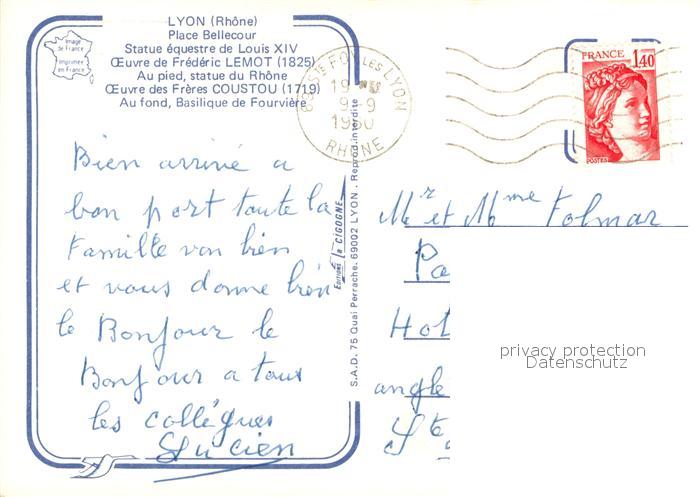 LYON (Rhône)
Place Bellecour
Statue équestre de Louis XIV
Œuvre de Frédéric LEMOT (1825)
Au pied, statue du Rhône
Œuvre des Frères COUSTOU (1719)
Au fond, Basilique de Fourvière
Image
de France
Imprimée
en France
69 STE FOY LES LYON
19 H
9-9
1980
RHÔNE
FRANCE
1,40
POSTES
Bien arrivé a
bon port toute la
Famille von bien
et vous donne bien
le Bonjour le
Bonjour a tous
les collégues
Lucien
S.A.D. 75 Quai Perrache. 69002 LYON . Reprod. interdite
Editions la CIGOGNE
Mr et Mme Folmar
Pa
Hot
angle
Ste
privacy protection
Datenschutz